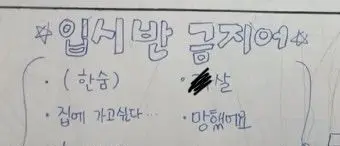 ☆입시반 금지어☆
· (한숨) · 살
· 집에 가고싶다... · 망했어요